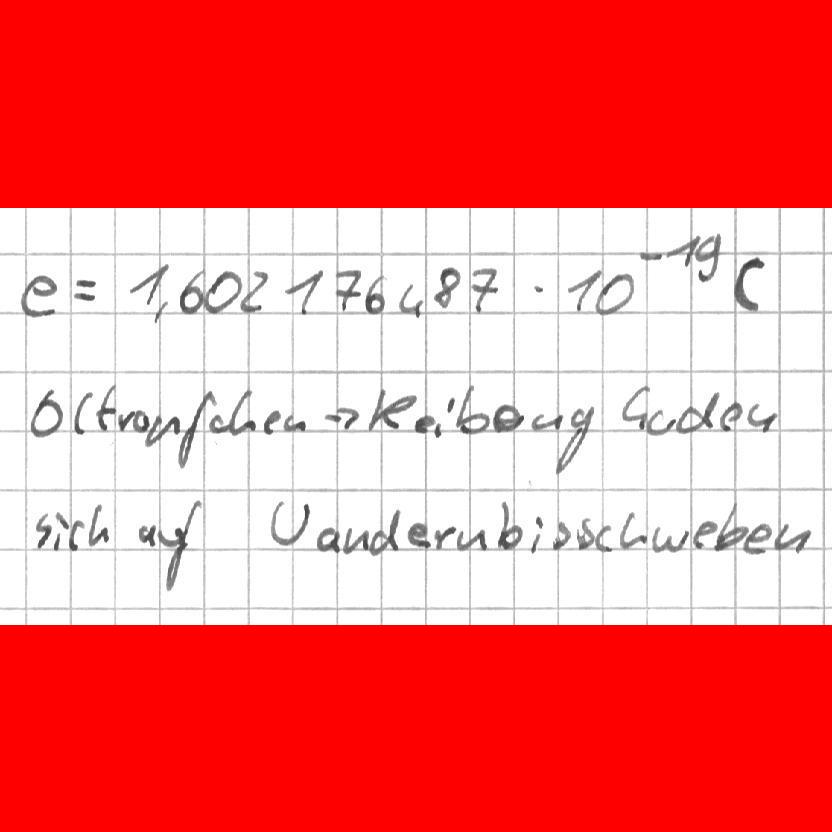 e = 1,602 176 487 · 10⁻¹⁹ C
Öltröpfchen → Reibung laden
sich auf U ändern bis schweben